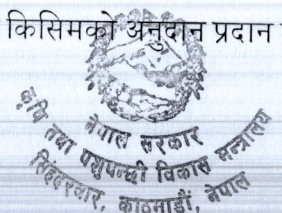 किसिमको अनुदान प्रदान
नेपाल सरकार
कृषि तथा पशुपन्छी विकास मन्त्रालय
सिंहदरबार, काठमाडौं, नेपाल